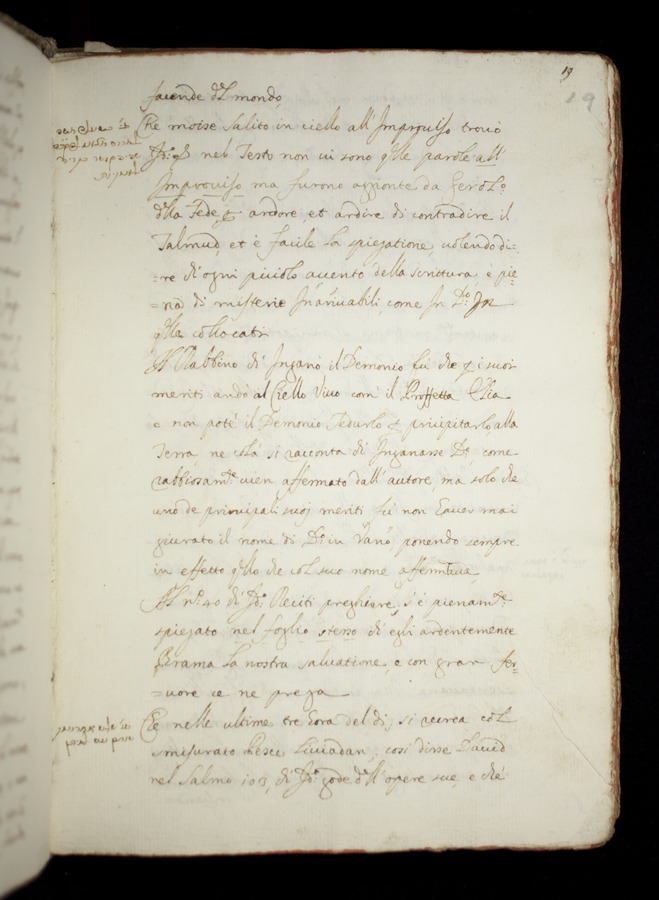 19
19
facende del mondo,
Che moise salito in ciello all'Improviso trovò
nel Testo non vi sono q.lle parole all'
Improviso ma furono aggionte da Gerol.º
d.lla Fede, ardore, et ardire di contradire il
Talmud, et è facile la spiegatione, volendo di:
:re di ogni picciolo accento della scrittura, è pie:
=no di misterie In
q.lle collocati
Il Rabbino di Inganò il Demonio fù che i suoi
meriti andò al Ciello Vivo com' il Proffetta Elia
e non potè il Demonio sedurlo precipitarlo alla
Terra, ne colà si racconta di Ingannare D.º, come
rabbiosam.te vien affermato dall'autore, ma solo che
uno de principali suoj meriti fù non haver mai
giurato il nome di D.º in Vano, ponendo sempre
in effetto q.llo che col suo nome affermava
Al n.º 40 di Reciti preghiere, s'è pienam.te
spiegato nel foglio stesso di egli ardentemente
Brama la nostra salvatione, e con gran fer:
=vore ce ne prega
Che nelle ultime tre hora del dj, si recrea col
smisurato Pesce Liviadan, così disse David
nel Salmo 103, di gode d.ll'opere sue, e ch'è